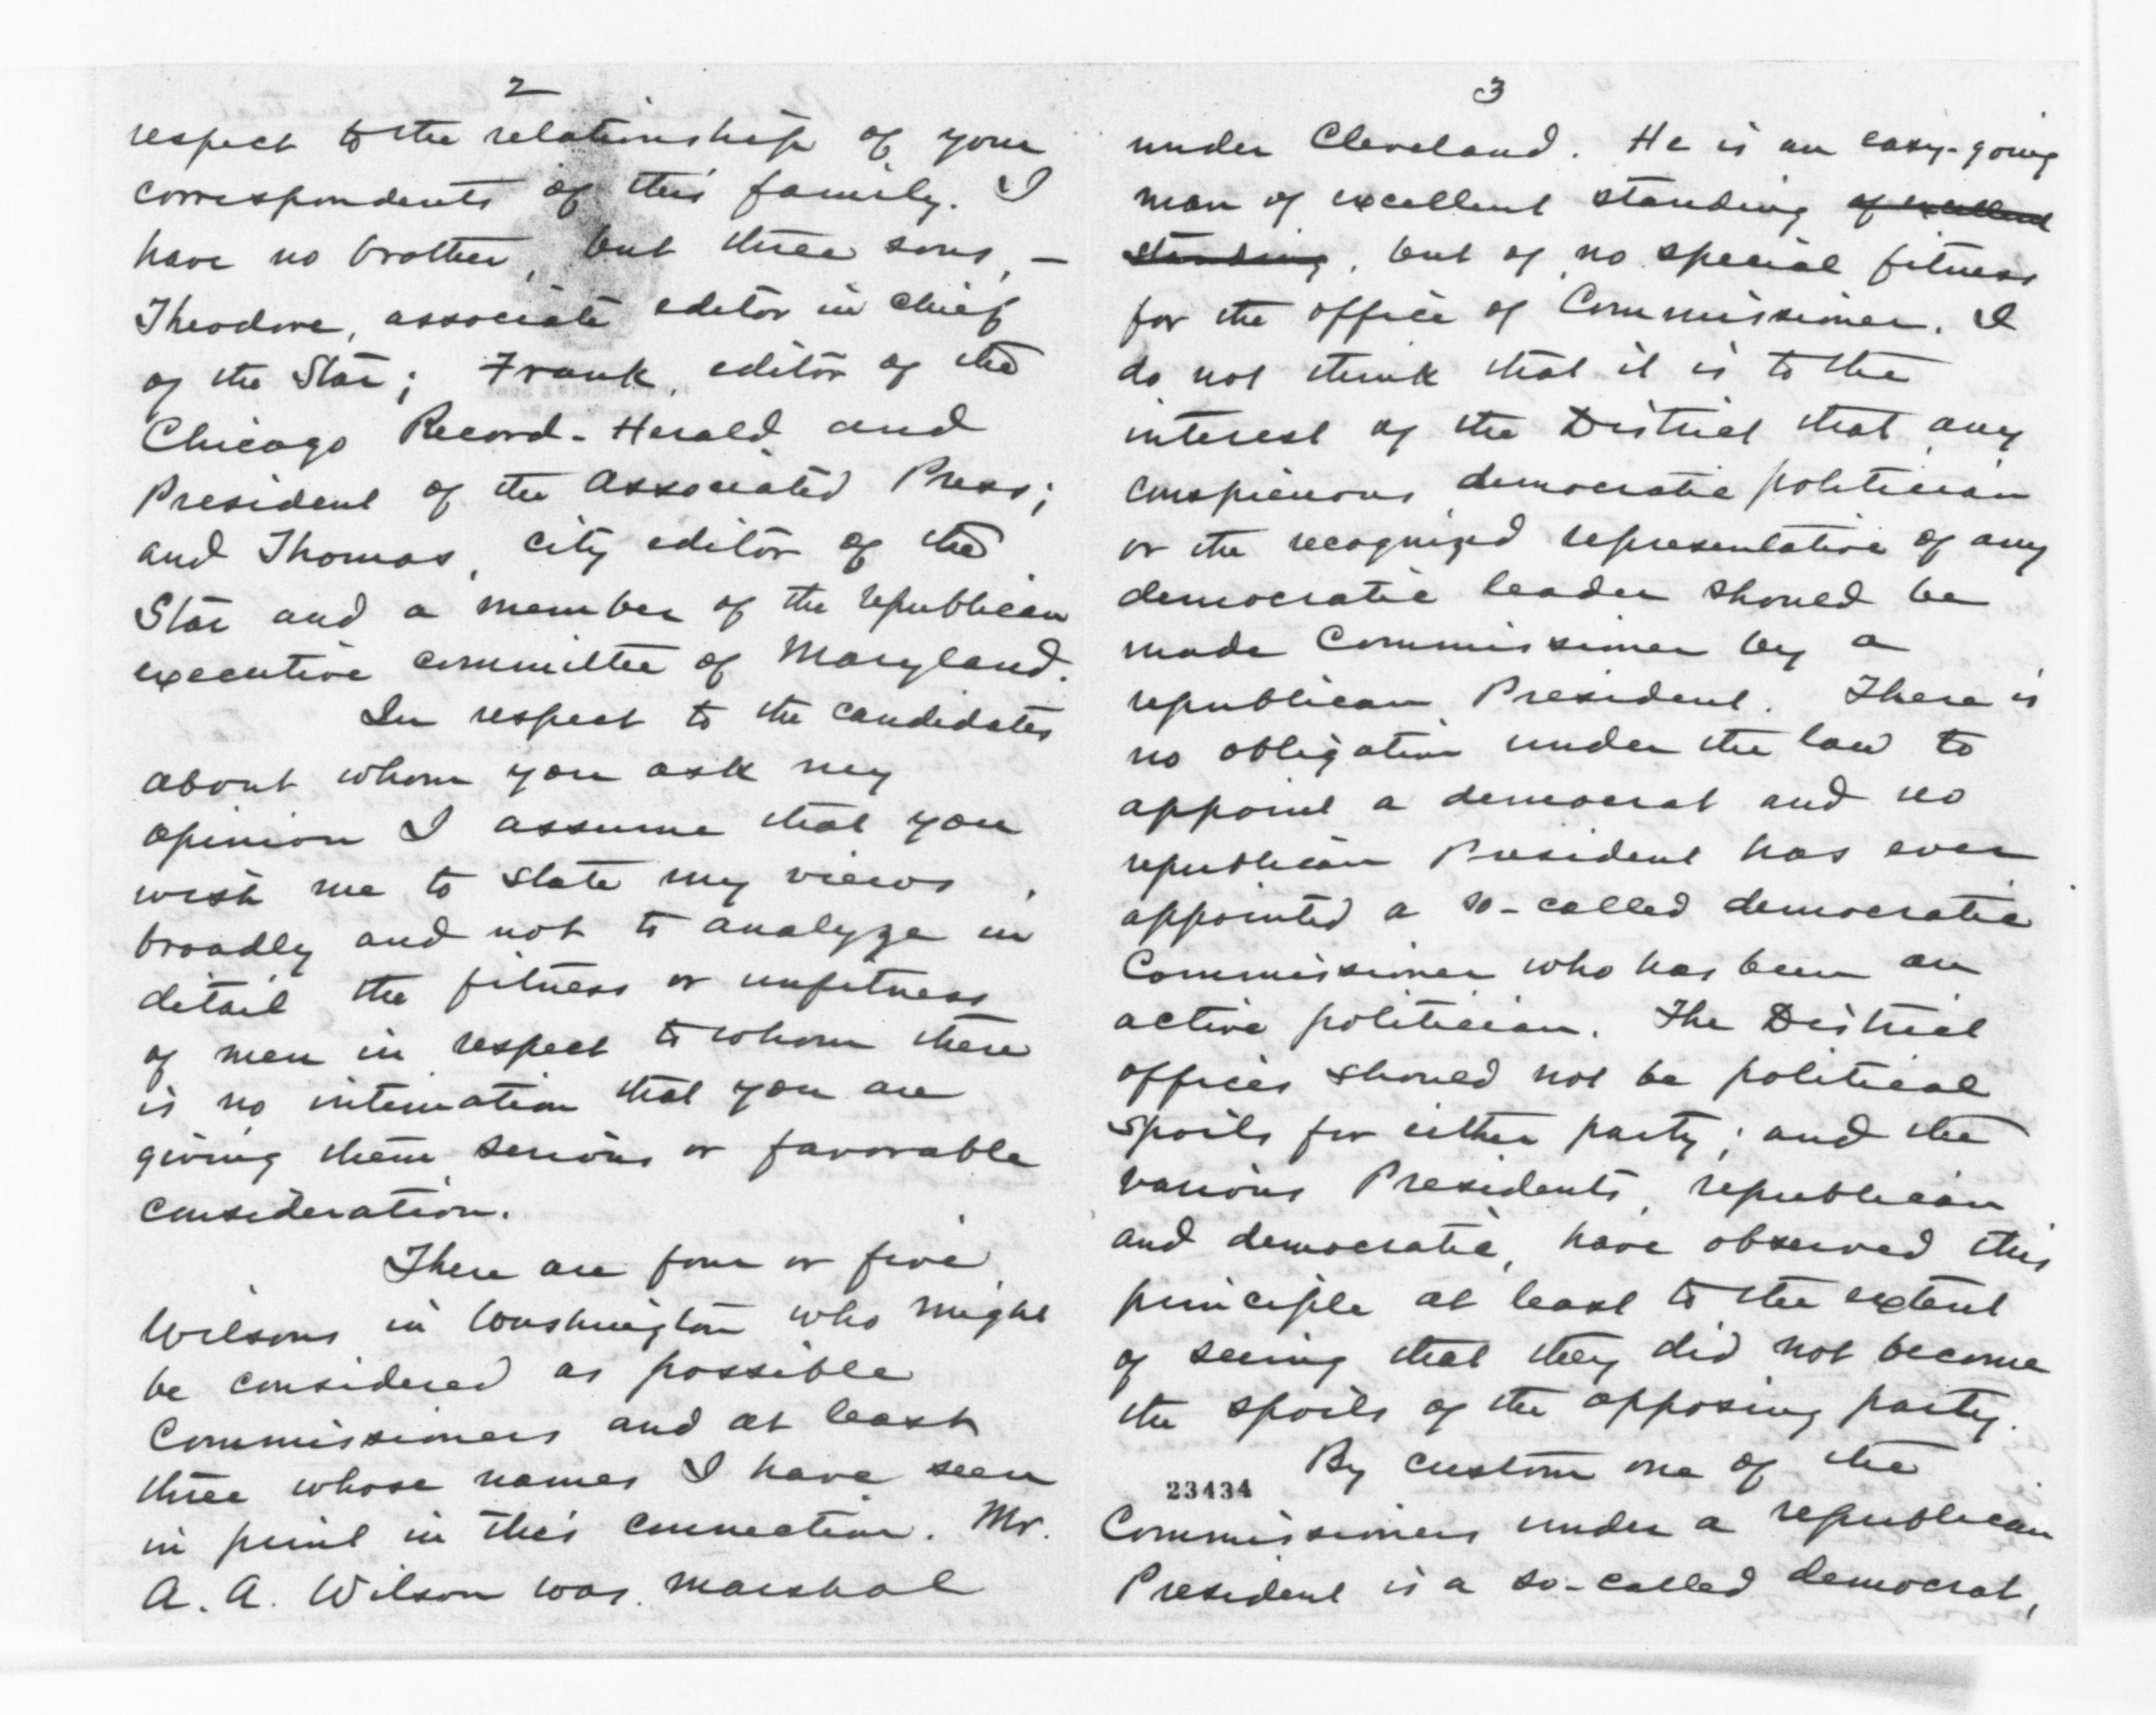 2
respect to the relationship of your
correspondents of this family. I
have no brother, but three sons, —
Theodore, associate editor in chief
of the Star; Frank, editor of the
Chicago Record-Herald and
President of the Associated Press;
and Thomas, city editor of the
Star and a member of the republican
executive committee of Maryland.
In respect to the candidates
about whom you ask my
opinion I assume that you
wish me to state my views
broadly and not to analyze in
detail the fitness or unfitness
of men in respect to whom there
is no intimation that you are
giving them serious or favorable
consideration.
There are four or five
Wilsons in Washington who might
be considered as possible
Commissioners and at least
three whose names I have seen
in print in this connection. Mr.
A. A. Wilson was marshal
3
under Cleveland. He is an easy-going
man of excellent standing of excellent
standing, but of no special fitness
for the office of Commissioner. I
do not think that it is to the
interest of the District that any
conspicuous democratic politician
or the recognized representative of any
democratic leader should be
made Commissioner by a
republican President. There is
no obligation under the law to
appoint a democrat and no
republican President has ever
appointed a so-called democratic
Commissioner who has been an
active politician. The District
offices should not be political
spoils for either party; and the
various Presidents, republican
and democratic, have observed this
principle at least to the extent
of seeing that they did not become
the spoils of the opposing party.
By custom one of the
23434
Commissioners under a republican
President is a so-called democrat,